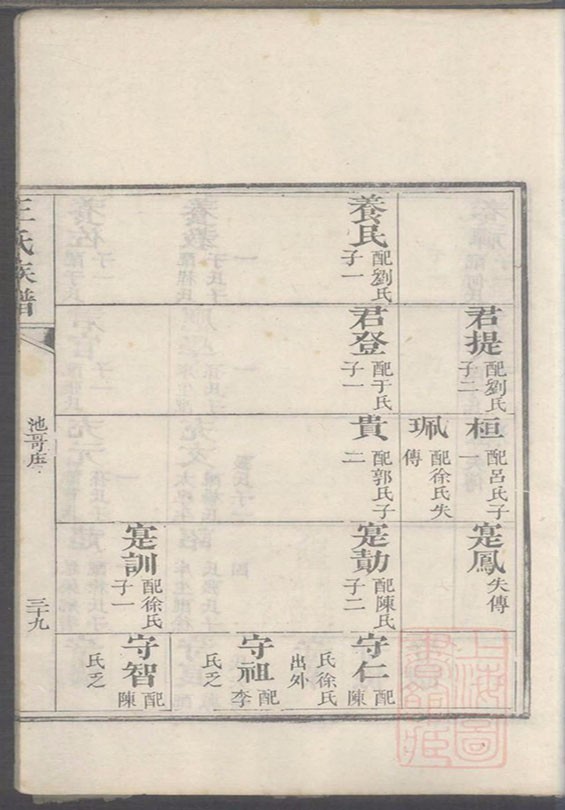 養民 配劉氏
子一
君提 配劉氏
子二
君登 配于氏
子一
桓 配呂氏子
一
珮 配徐氏失
傳
貴 配郭氏子
二
寔鳳 失傳
寔勣 配陳氏
子二
寔訓 配徐氏
子一
守仁 配陳
氏徐氏
出外
守祖 配李
氏乏
守智 配陳
氏乏
王氏族譜
池哥庄
三十九
上海圖
書館藏